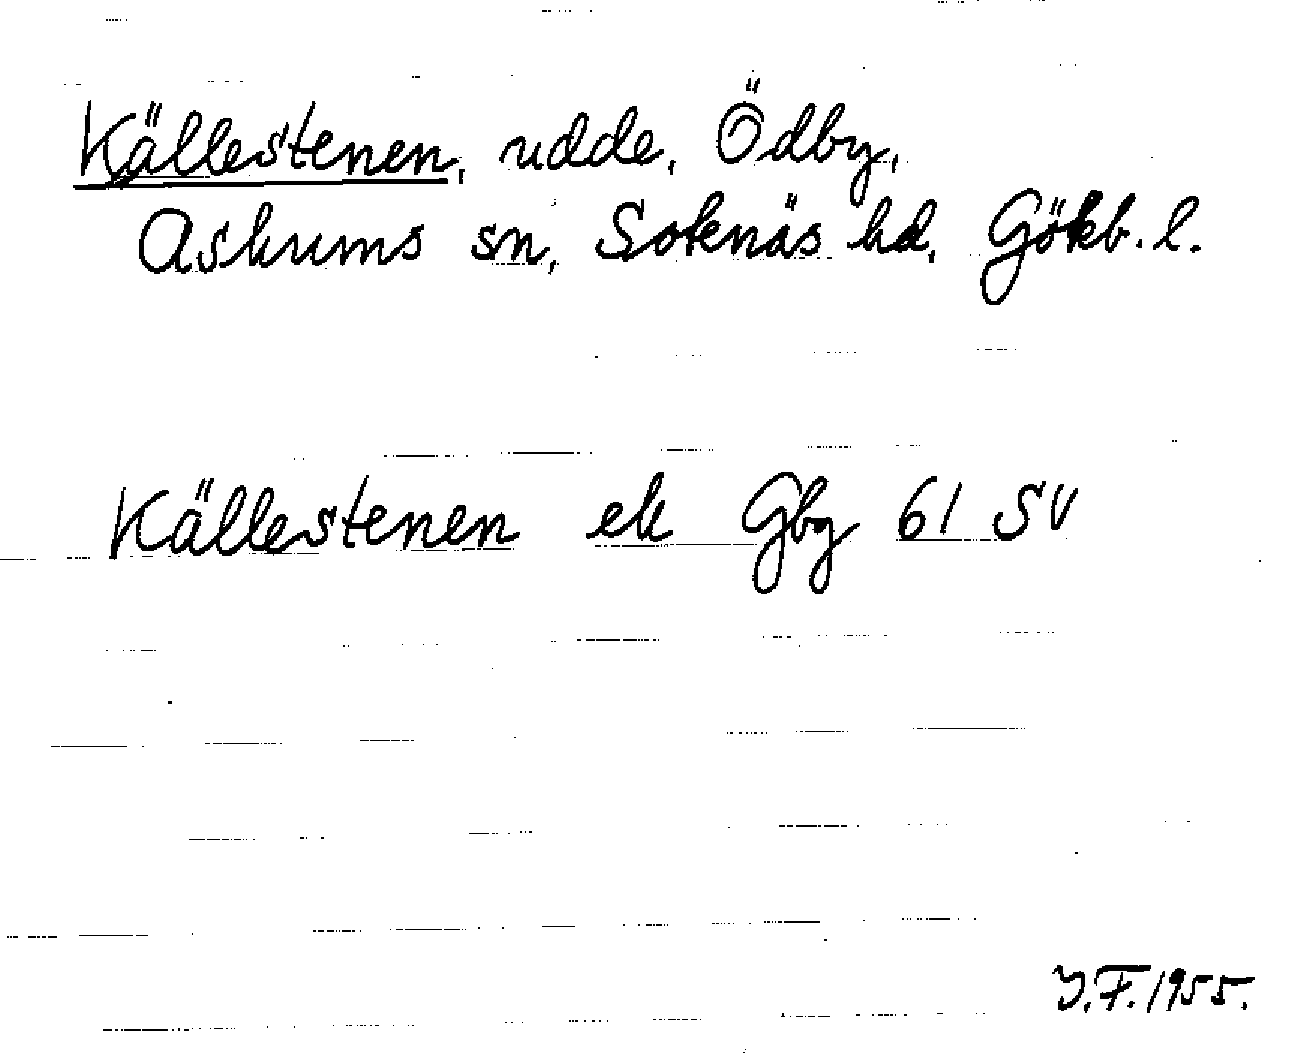 Källestenen, udde, Ödby,
Askums sn, Sotenäs hd, Gökb. l.
Källestenen ek Gbg 61 SV
J.F. 1955.